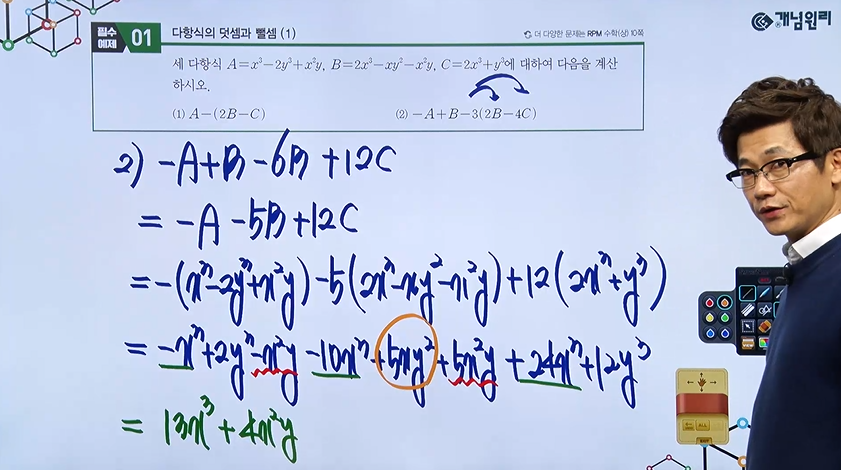 필수 예제 01 다항식의 덧셈과 뺄셈 (1)
더 다양한 문제는 RPM 수학(상) 10쪽
개념원리
세 다항식 A=x³-2y³+x²y, B=2x³-xy²-x²y, C=2x³+y³에 대하여 다음을 계산
하시오.
(1) A-(2B-C) (2) -A+B-3(2B-4C)
2) -A+B-6B+12C
= -A-5B+12C
= -(x³-2y³+x²y)-5(2x³-xy²-x²y)+12(2x³+y³)
= -x³+2y³-x²y-10x³+5xy²+5x²y+24x³+12y³
= 13x³+4x²y